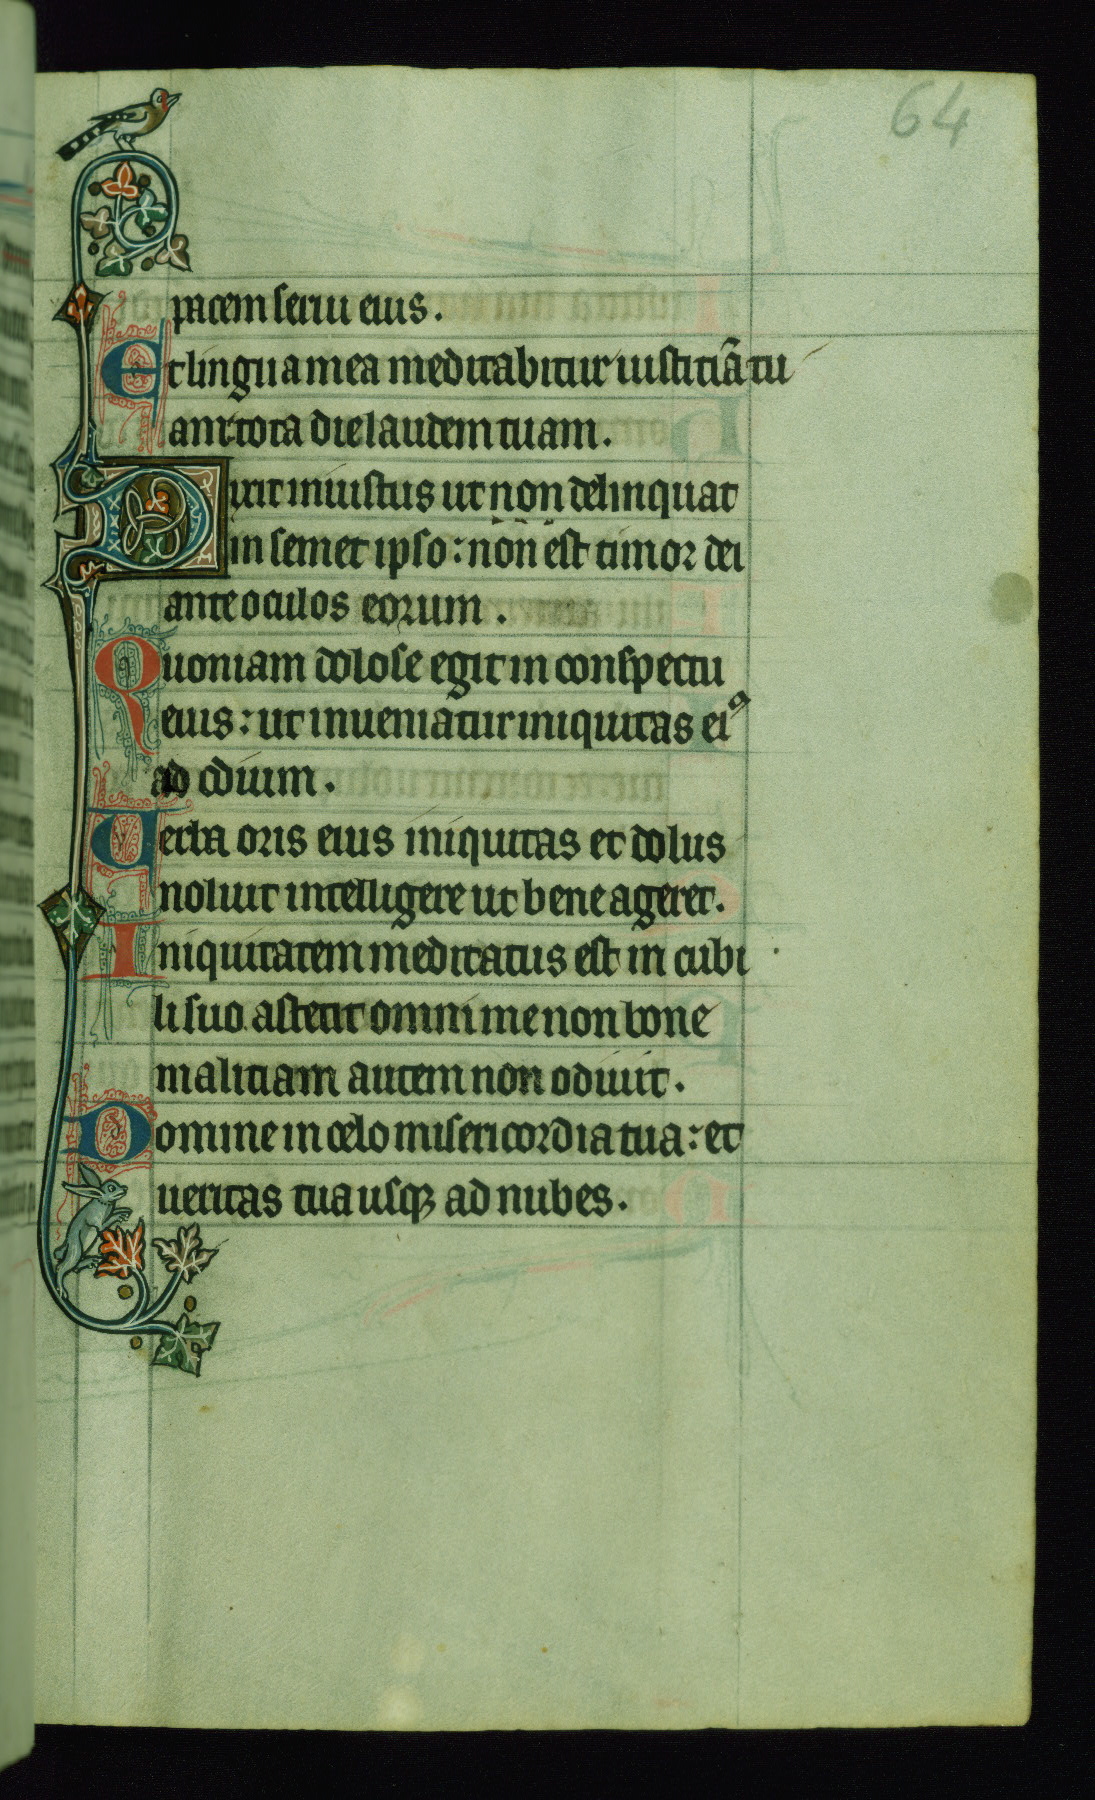 64
pacem serui eius.
Et lingua mea meditabitur iusticiā tu
am: tota die laudem tuam.
Dixit iniustus ut non delinquat
in semet ipso: non est timor dei
ante oculos eorum.
Quoniam dolose egit in conspectu
eius: ut inueniatur iniquitas eiꝰ
ad odium.
Uerba oris eius iniquitas et dolus
noluit intelligere ut bene ageret.
Iniquitatem meditatus est in cubi
li suo astetit omni uie non bone
malitiam autem non odiuit.
Domine in celo misericordia tua: et
ueritas tua usqꝫ ad nubes.